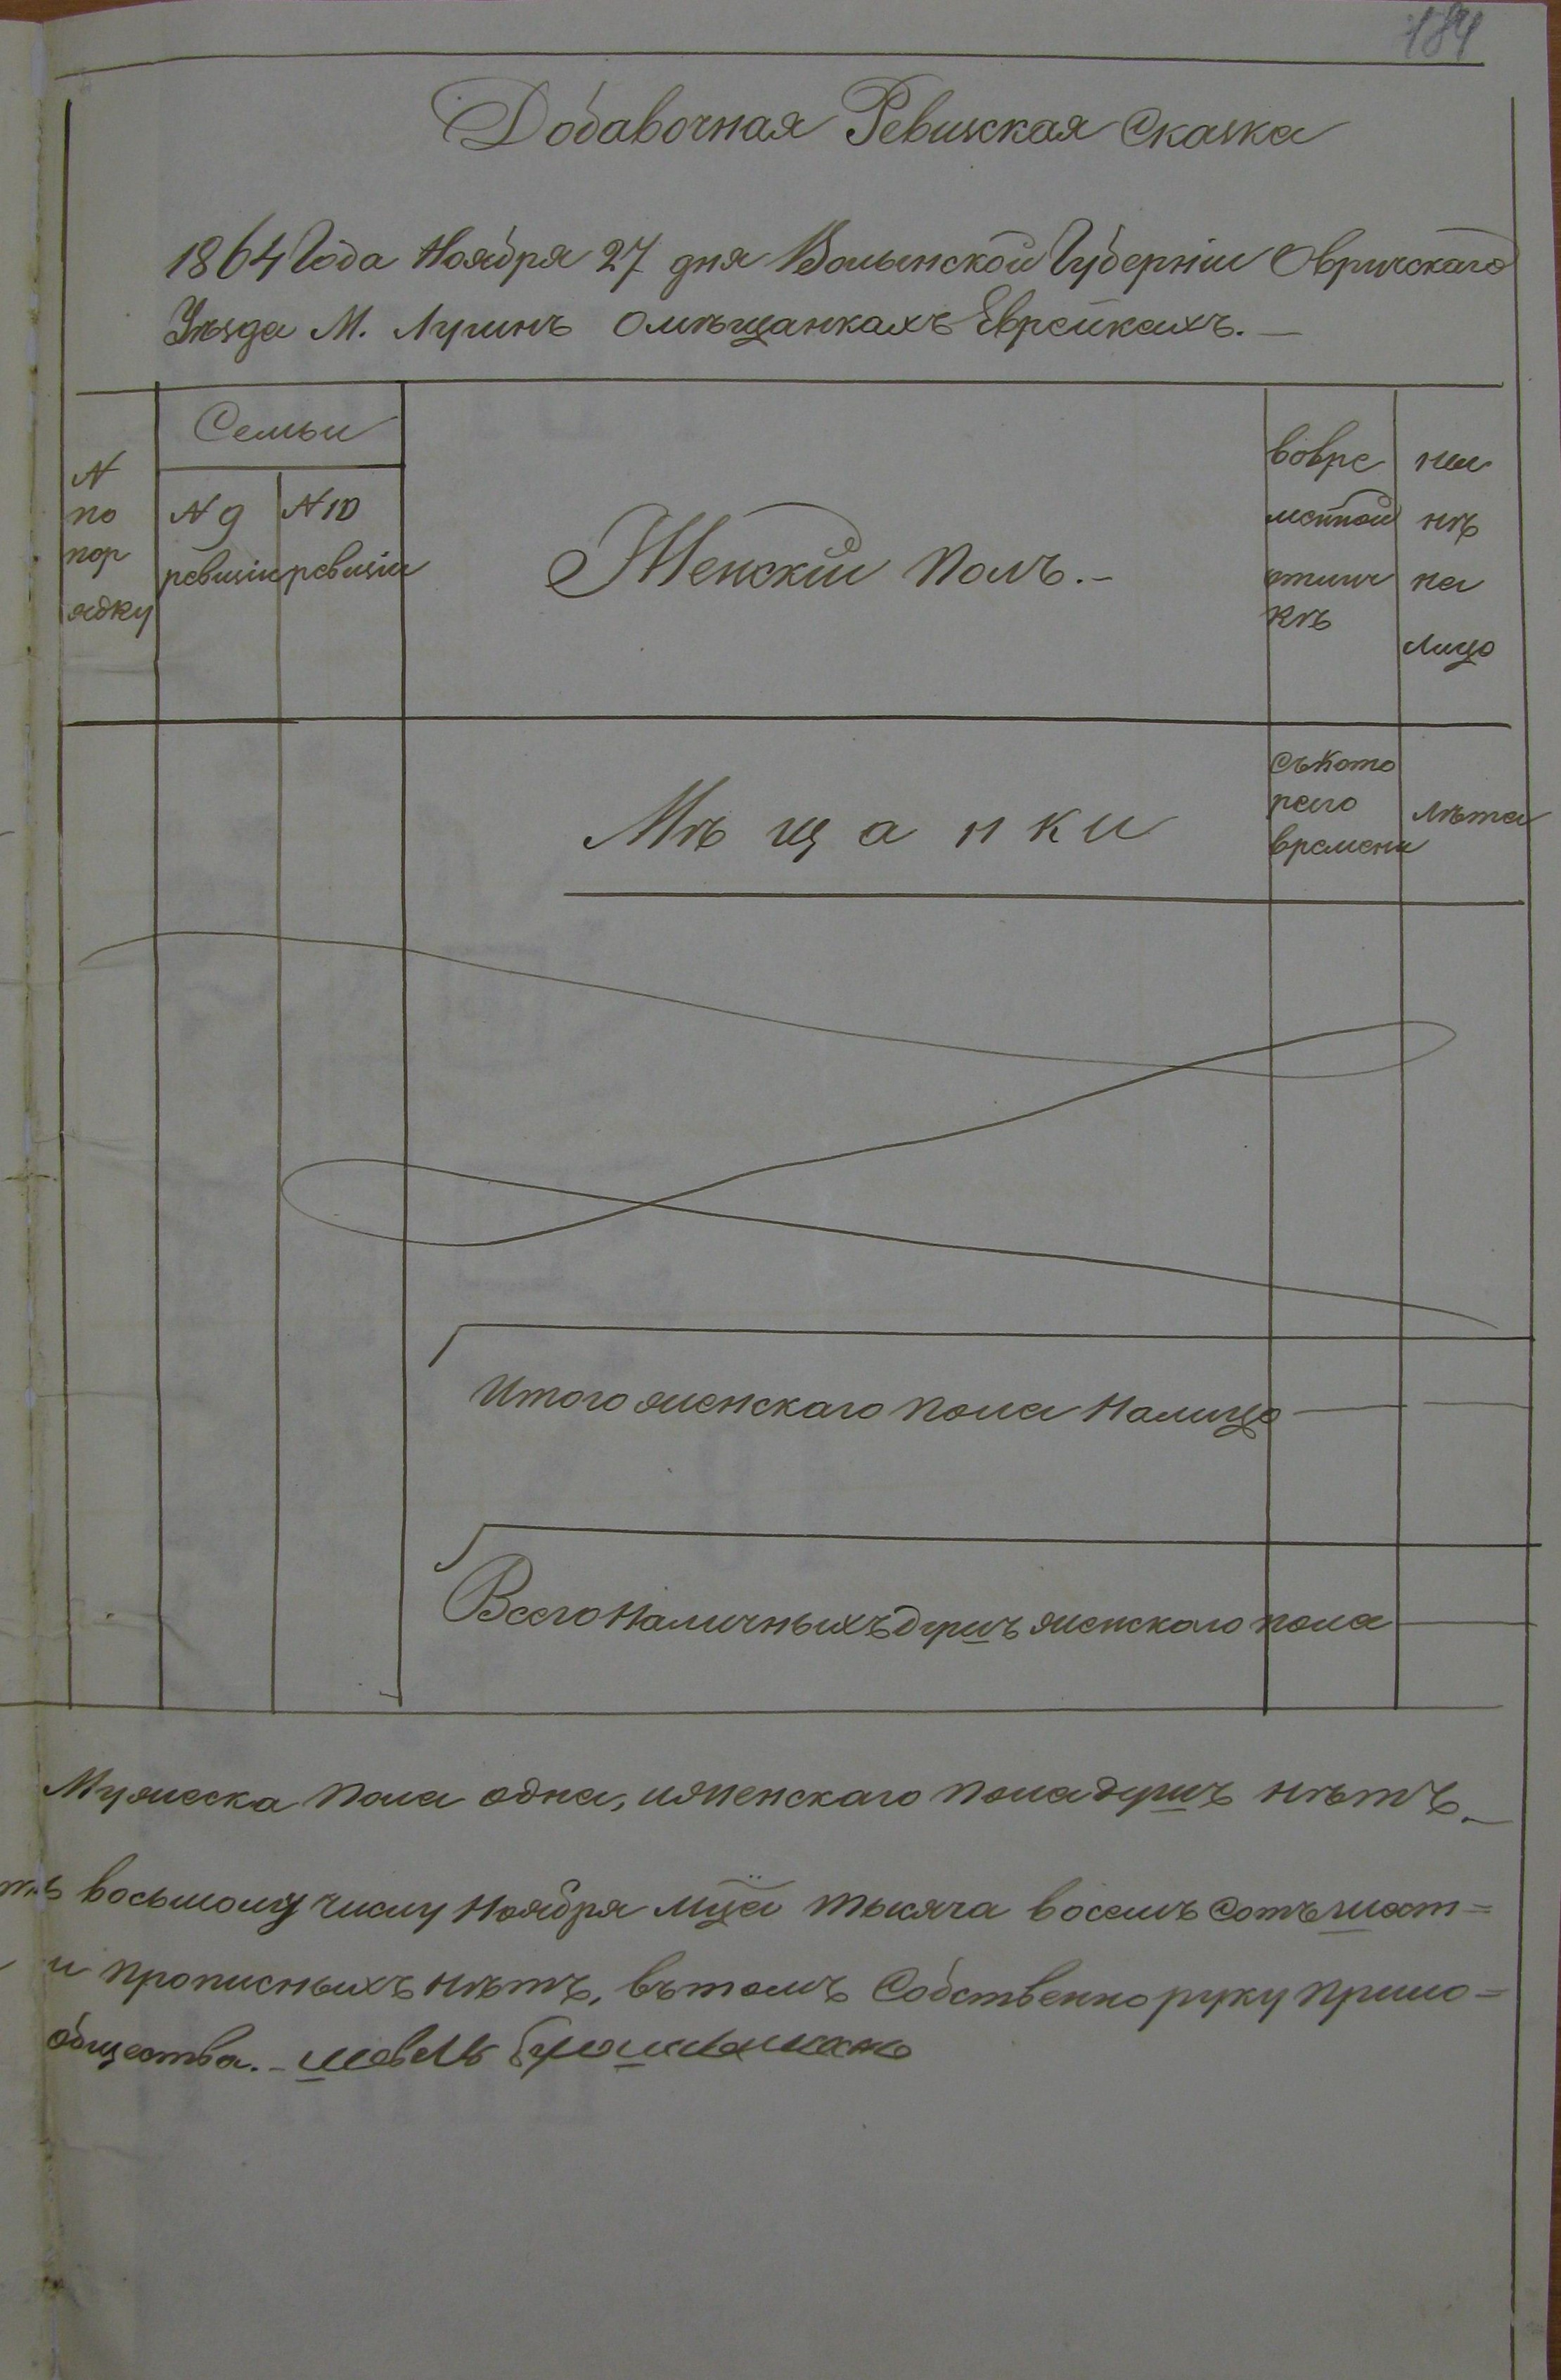 184
Добавочная Ревизская Сказка
1864 Года Ноября 27 дня Волынской Губерніи Овручскаго
Уѣзда М. Лугинъ омѣщанкахъ Еврейкахъ.—
N
по
пор
ядку
Семьи
N 9
ревизіи
N 10
ревизіи
Женскій полъ.-
вовре
менной
отлуч
кѣ
ны
нѣ
на
лицо
Мѣщанки
съкото
раго
времени
лѣта
Итого женскаго пола Налицо
Всего Наличныхъ душъ женскаго пола
Мужеска пола одна, иженскаго пола душъ нѣтъ.—
восьмому числу Ноября мца тысяча восемь Сотъ шест=
и прописныхъ нѣтъ, вътомъ Собственноруку прило=
общества.-